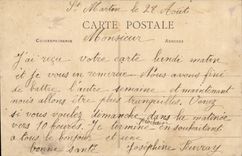 St Martin le 28 Août
CARTE POSTALE
CORRESPONDANCE ADRESSE
Monsieur
J'ai reçu votre carte lundi matin
et je vous en remercie Nous avons fini
de battre l'autre semaine et maintenant
nous allons être plus tranquilles. Venez
si vous voulez demanche dans la matinée
vers 10 heures. Je termine en souhaitant
à tous le bonjour et une
bonne santé. Joséphine